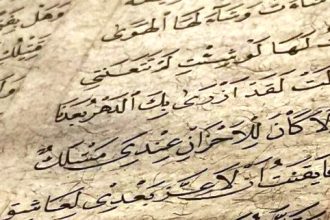 وشاء لها الهوى
لها لو شئت لم تتعنتي
لقد ازرى بك الدهر بعدنا
كان للاحزان عندي مسلك
فايقنت أن لا عز بعدي لعاشق